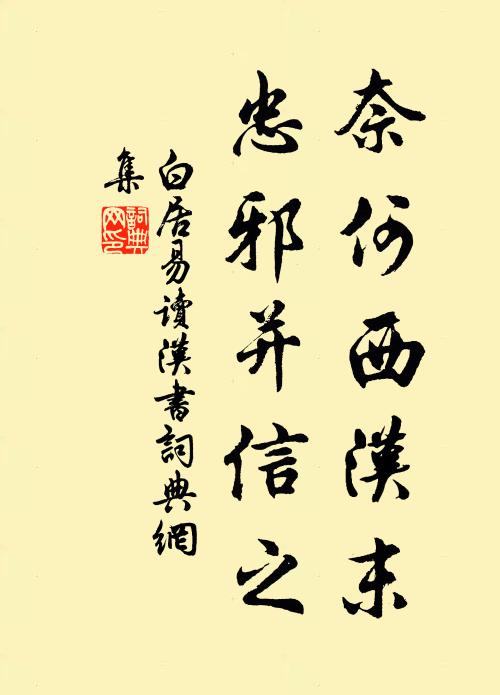 奈何西漢末
忠邪并信之
白居易讀漢書詞典網
集
詞典網印